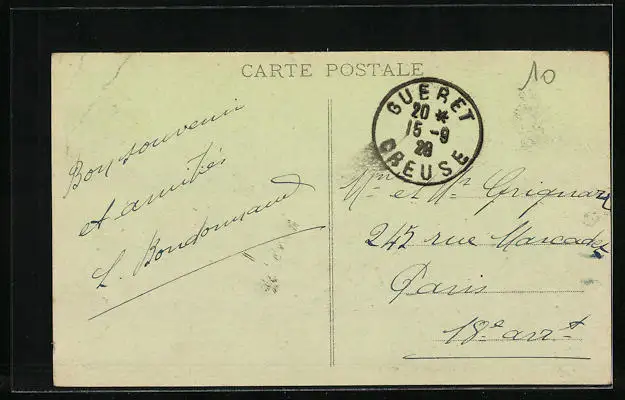 CARTE POSTALE
10
GUERET
20 *
15 - 9
28
CREUSE
Bon souvenir
et amitiés
L. Boudonnaud
Mme et Mr Grignan
245 rue Marcadet
Paris
18e arrt